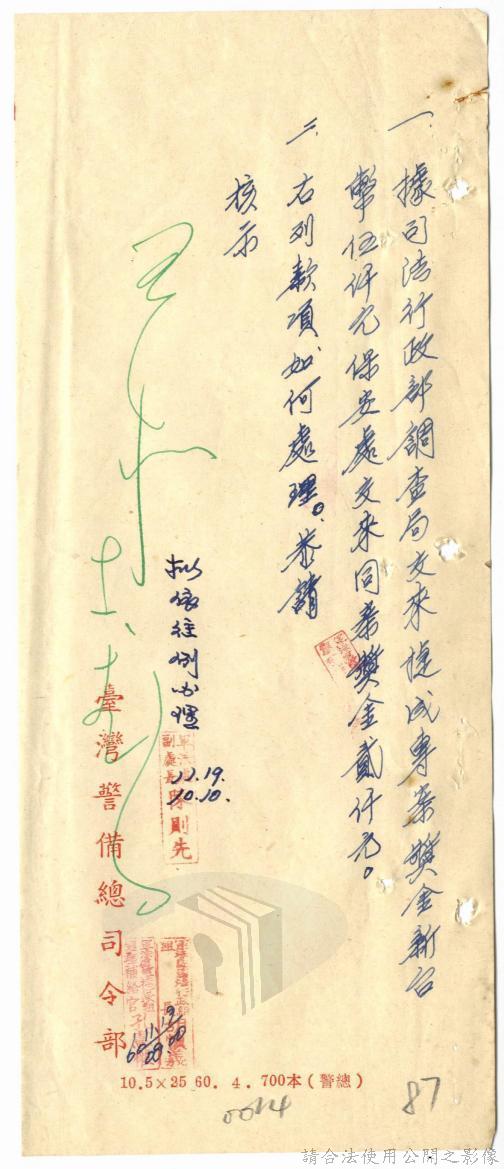 一、據司法行政部調查局文來捷成專案獎金新台
幣伍仟元保安處文來同案獎金貳仟元。
二、右列款項如何處理。恭請
核示
擬依往例辦理
副處長
陳則先
11.19.
10.10.
臺灣警備總司令部
10.5×25 60.4.700本(警總)
0014
87
請合法使用公開之影像